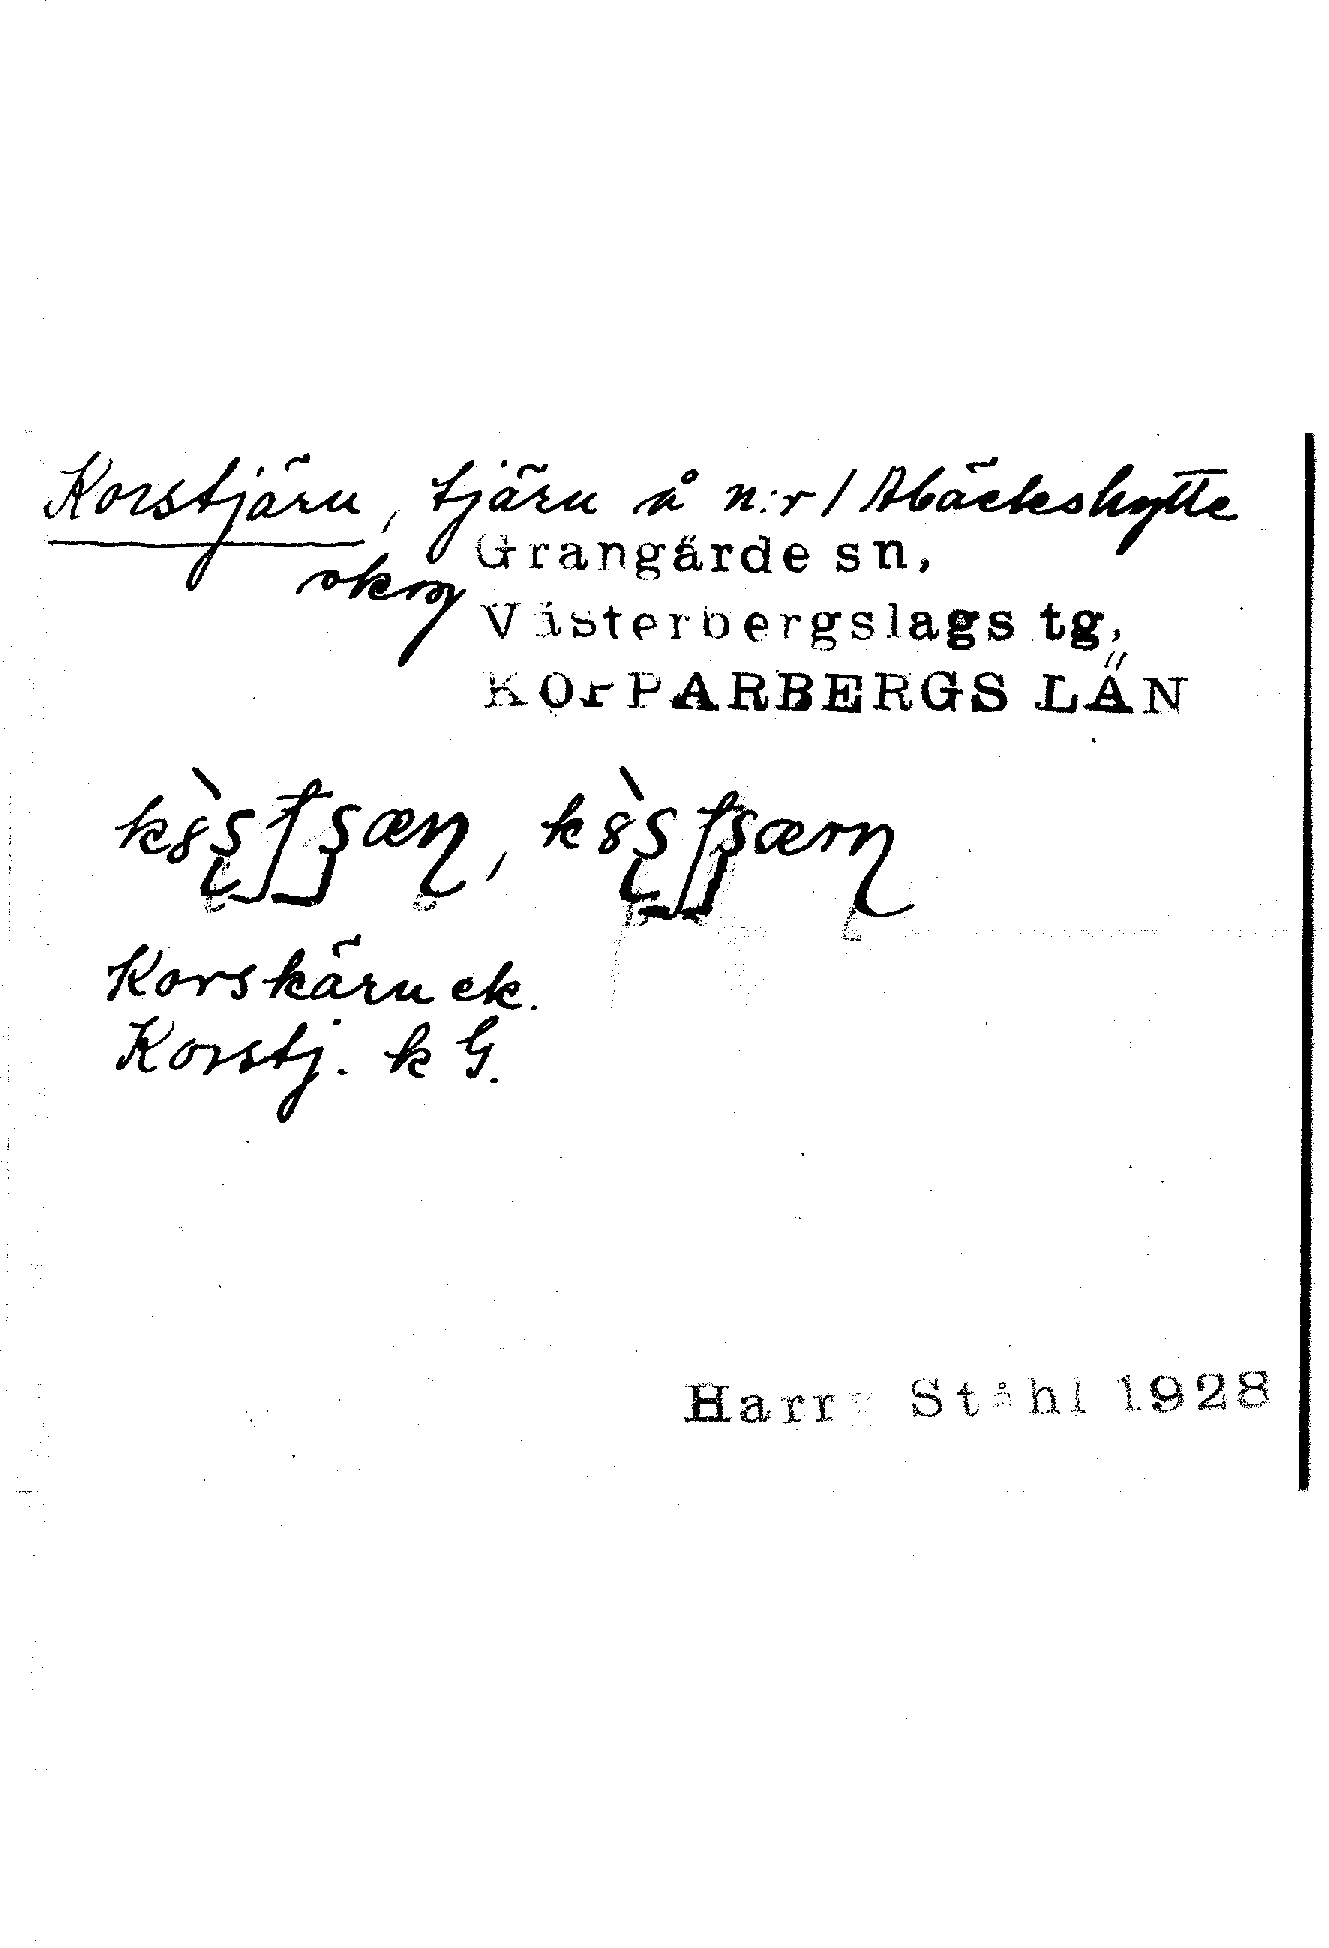 Korstjärn, tjärn å n:r 1 Abäckshytte
skog Grangärde sn,
Västerbergslags tg,
KOPPARBERGS LÄN
Korskärn ek.
Korstj. k G.
Harry Ståhl 1928